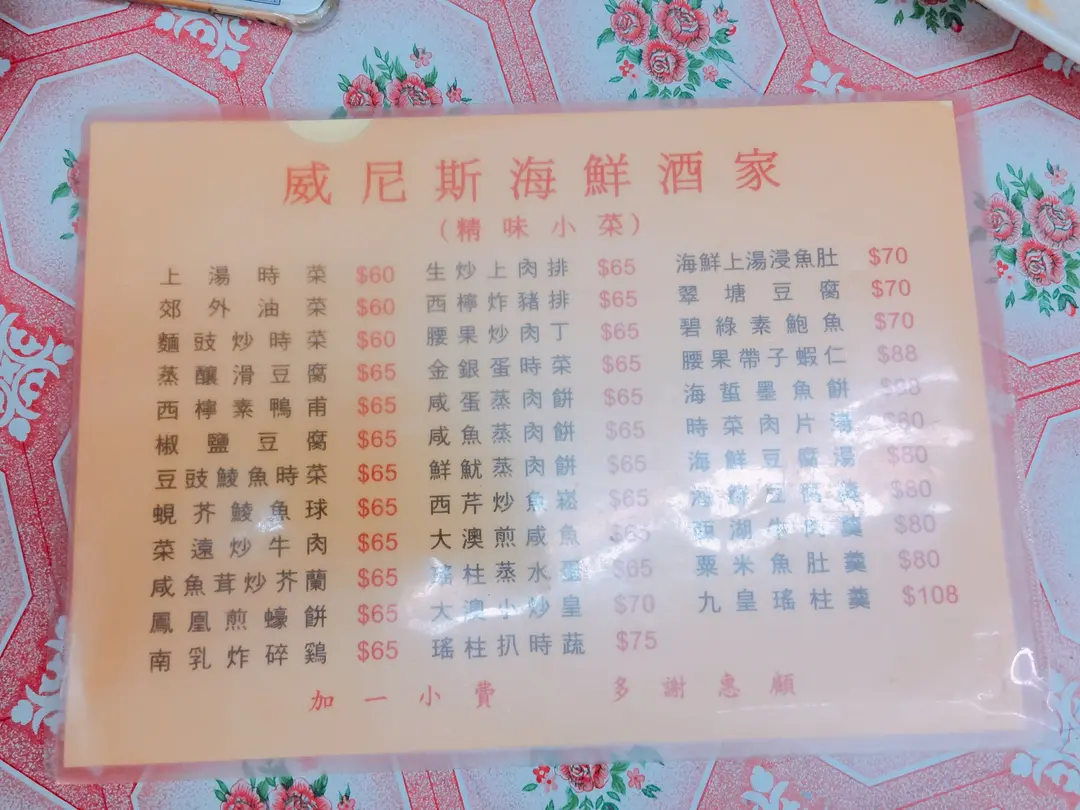 威尼斯海鮮酒家
(精味小菜)
上湯時菜 $60
郊外油菜 $60
麵豉炒時菜 $60
蒸釀滑豆腐 $65
西檸素鴨甫 $65
椒鹽豆腐 $65
豆豉鯪魚時菜 $65
蜆芥鯪魚球 $65
菜遠炒牛肉 $65
咸魚茸炒芥蘭 $65
鳳凰煎蠔餅 $65
南乳炸碎鷄 $65
生炒上肉排 $65
西檸炸豬排 $65
腰果炒肉丁 $65
金銀蛋時菜 $65
咸蛋蒸肉餅 $65
咸魚蒸肉餅 $65
鮮魷蒸肉餅 $65
西芹炒魚崧 $65
大澳煎咸魚 $65
瑤柱蒸水蛋 $65
大澳小炒皇 $70
瑤柱扒時蔬 $75
海鮮上湯浸魚肚 $70
翠塘豆腐 $70
碧綠素鮑魚 $70
腰果帶子蝦仁 $88
海蜇墨魚餅
時菜肉片湯 $80
海鮮豆腐湯 $80
海鮮豆腐羹 $80
西湖牛肉羹 $80
粟米魚肚羹 $80
九皇瑤柱羹 $108
加一小費 多謝惠顧